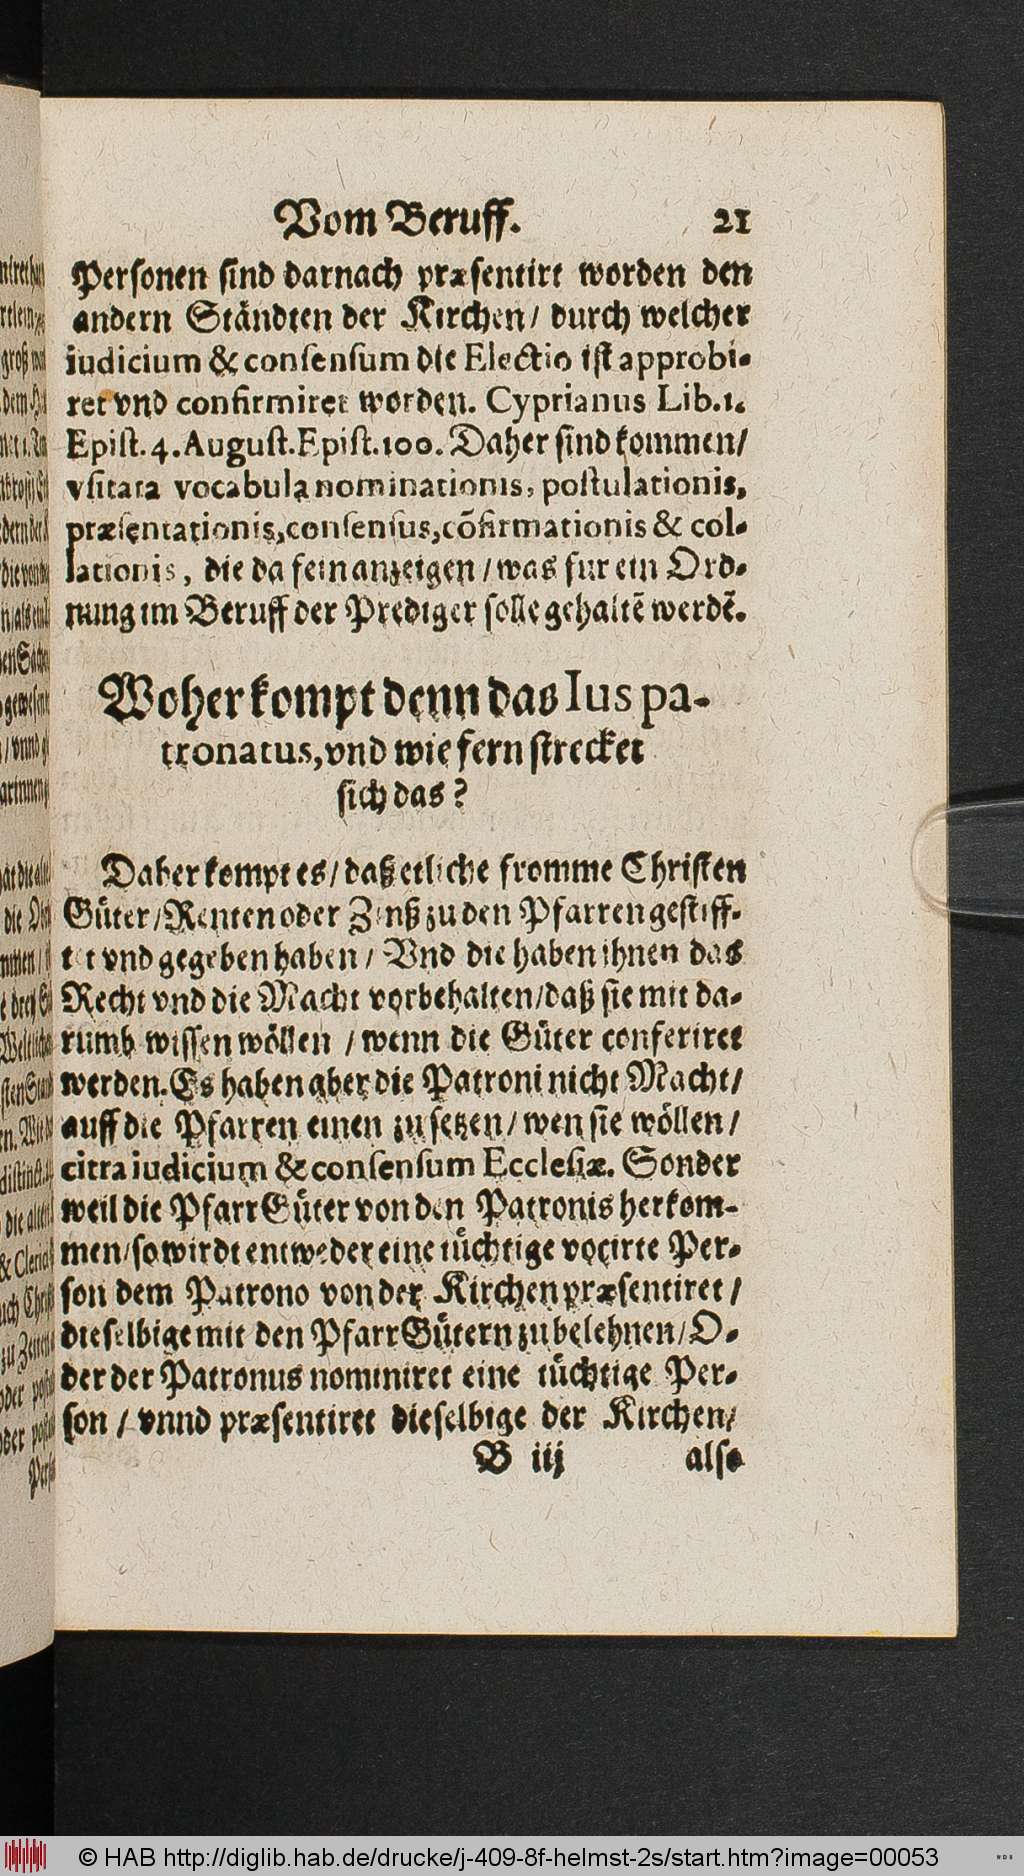 Vom Beruff. 21
Personen sind darnach præsentirt worden den
andern Ständten der Kirchen / durch welcher
iudicium & consensum die Electio ist approbi-
ret vnd confirmiret worden. Cyprianus Lib. 1.
Epist. 4. August. Epist. 100. Daher sind kommen /
vsitata vocabula nominationis, postulationis,
præsentationis, consensus, cõfirmationis & col-
lationis, die da fein anzeigen / was fur ein Ord-
nung im Beruff der Prediger solle gehaltẽ werdẽ.
Woher kompt denn das Ius pa-
tronatus, vnd wie fern strecket
sich das?
Daher kompt es / daß etliche fromme Christen
Güter / Renten oder Zinß zu den Pfarren gestiff-
tet vnd gegeben haben / Vnd die haben ihnen das
Recht vnd die Macht vorbehalten / daß sie mit da-
rumb wissen wöllen / wenn die Güter conferiret
werden. Es haben aber die Patroni nicht Macht /
auff die Pfarren einen zu setzen / wen sie wöllen /
citra iudicium & consensum Ecclesiæ. Sonder
weil die PfarrGüter von den Patronis herkom-
men / so wirdt entweder eine tüchtige vocirte Per-
son dem Patrono von der Kirchen præsentiret /
dieselbige mit den PfarrGütern zu belehnen / O-
der der Patronus nominiret eine tüchtige Per-
son / vnnd præsentiret dieselbige der Kirchen /
B iij also
© HAB http://diglib.hab.de/drucke/j-409-8f-helmst-2s/start.htm?image=00053